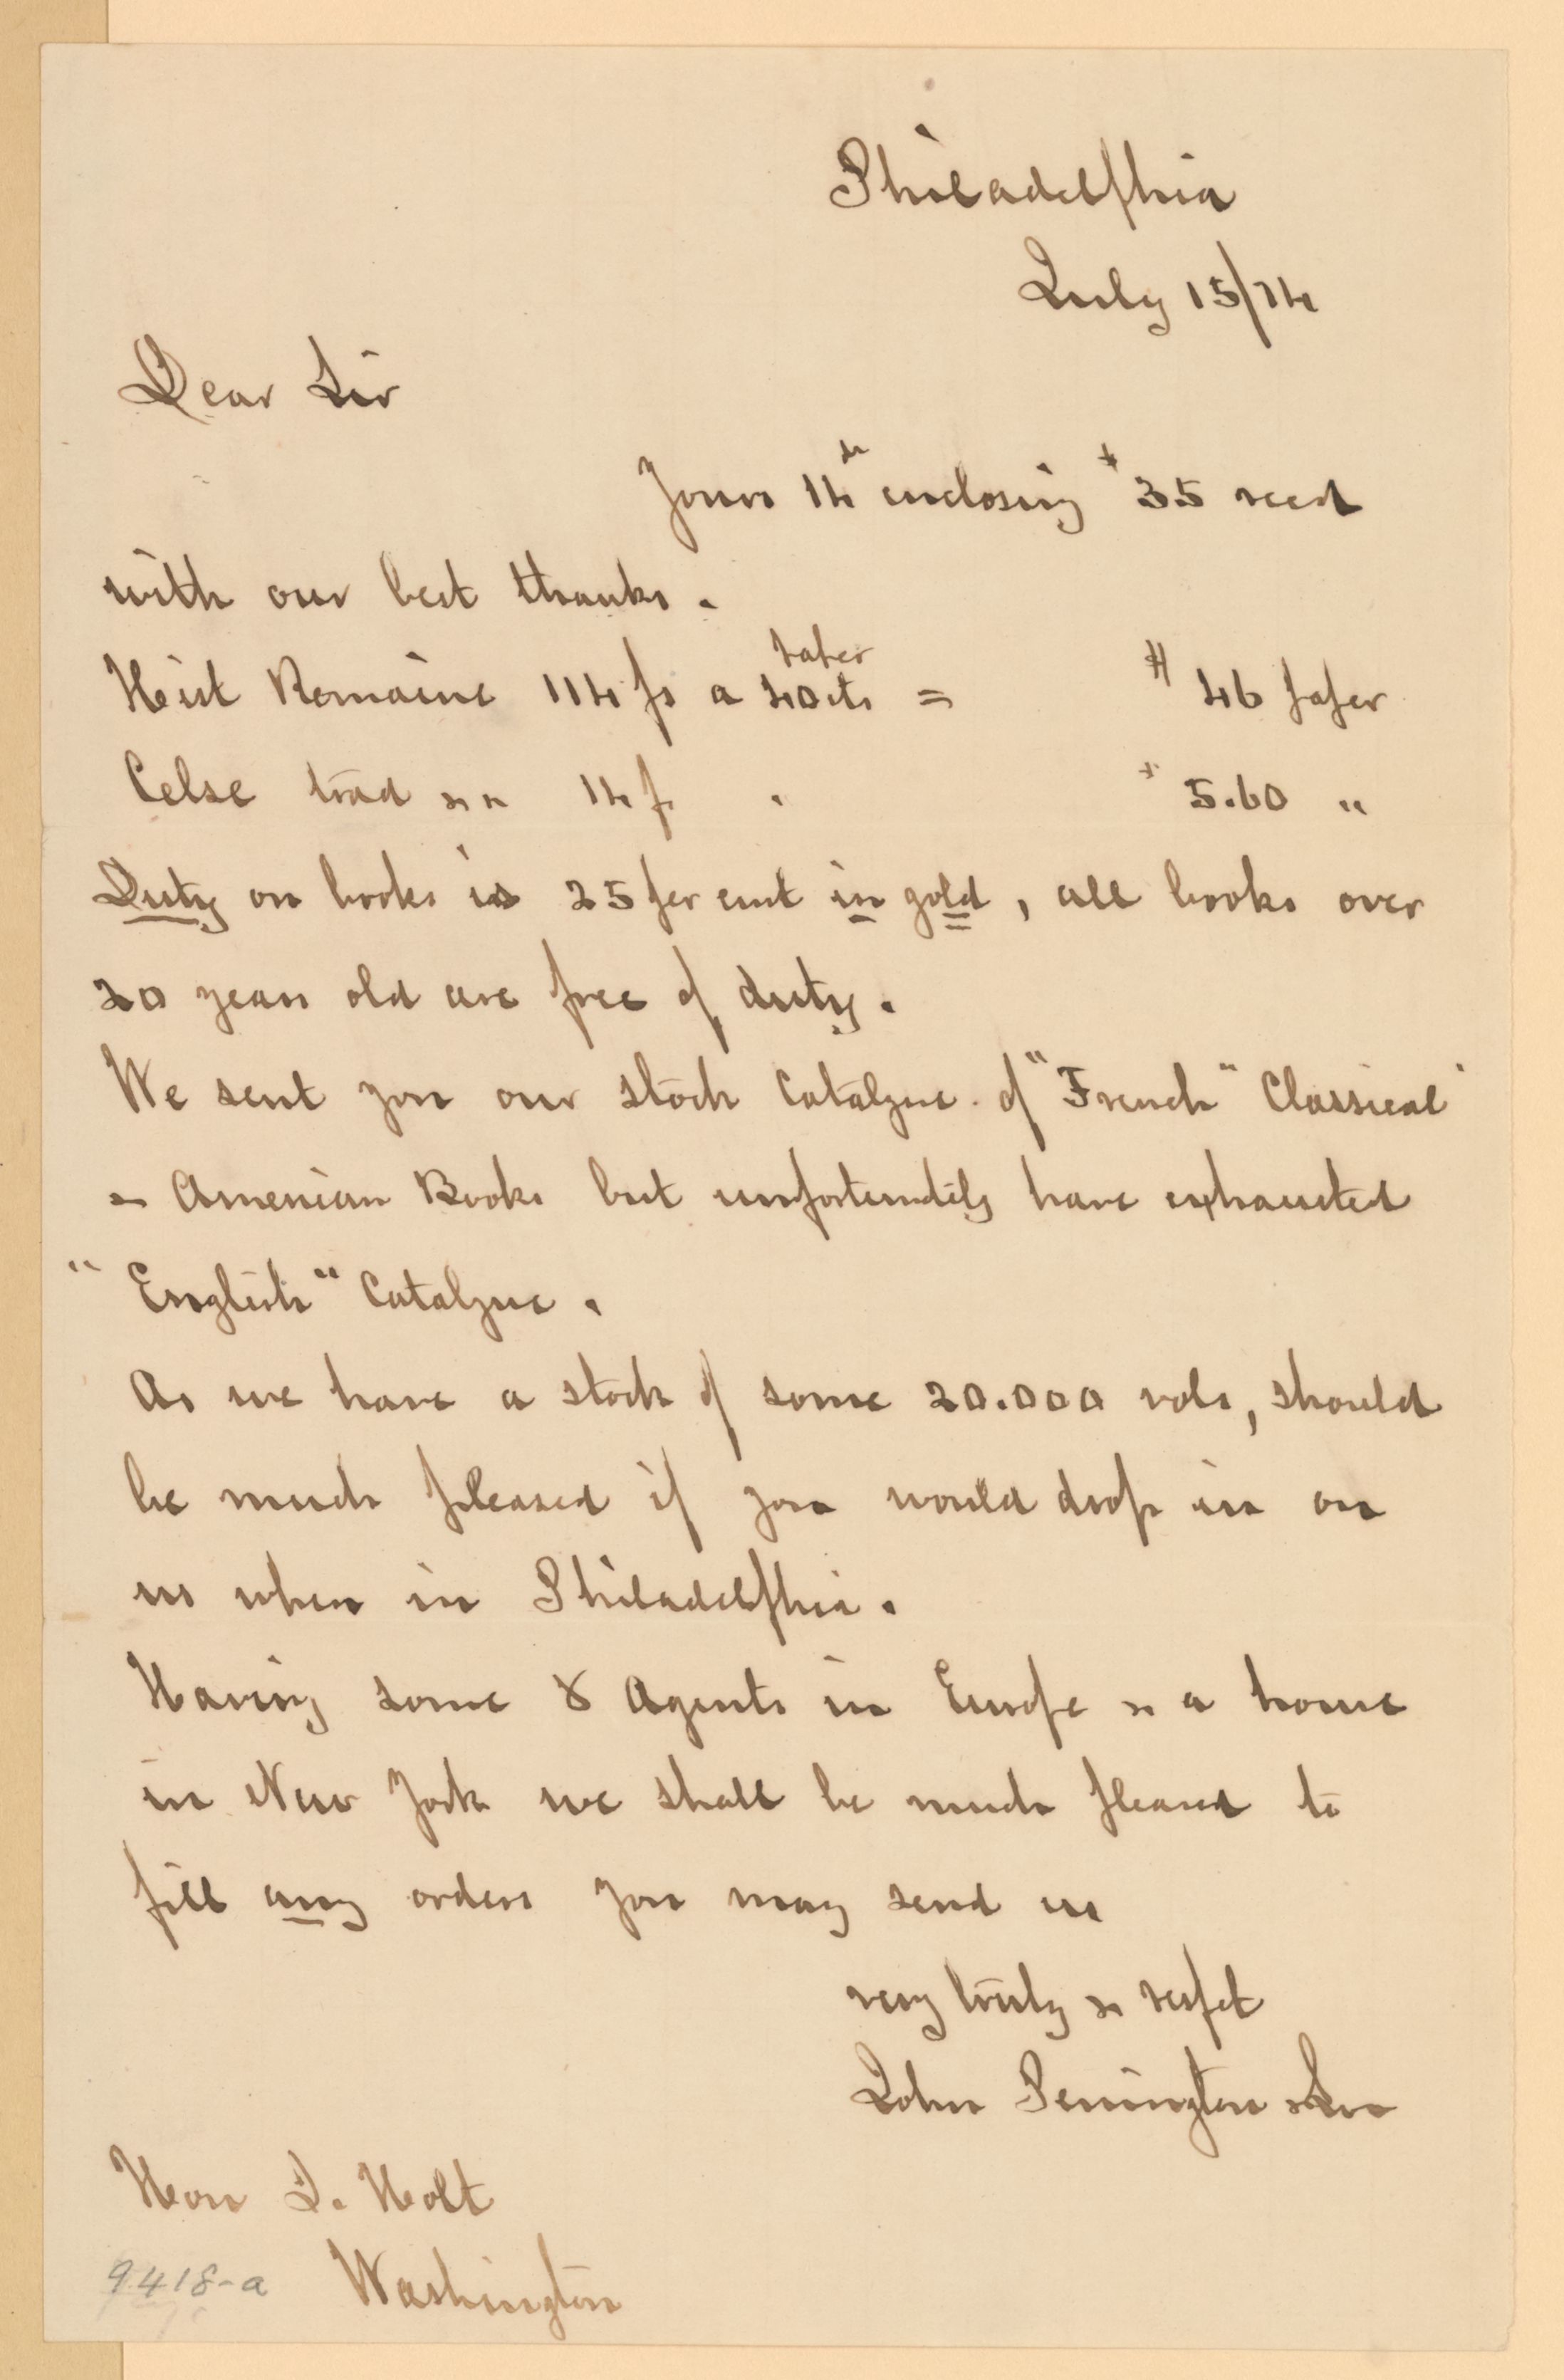 Philadelphia
July 15/74
Dear Sir
Yours 14th enclosing $35 recd
with our best thanks.
Hist Romaine 114 fs a 40cts paper = $46 paper
Celse trad 14 f. $5.60 "
Duty on books is 25 per cent in gold, all books over
20 years old are free of duty.
We sent you our stock Catalgue of "French" Classical"
& American Books but unfortunatily have exhausted
"English" Catalgue.
As we have a stock of some 20.000 vols, should
be much pleased if you would drop in on
us when in Philadelphia.
Having some 8 Agents in Europe & a house
in New York we shall be much pleased to
fill any orders you may send us
very truly & respct
John Penington & Son
Hon J. Holt
Washington
9418-a